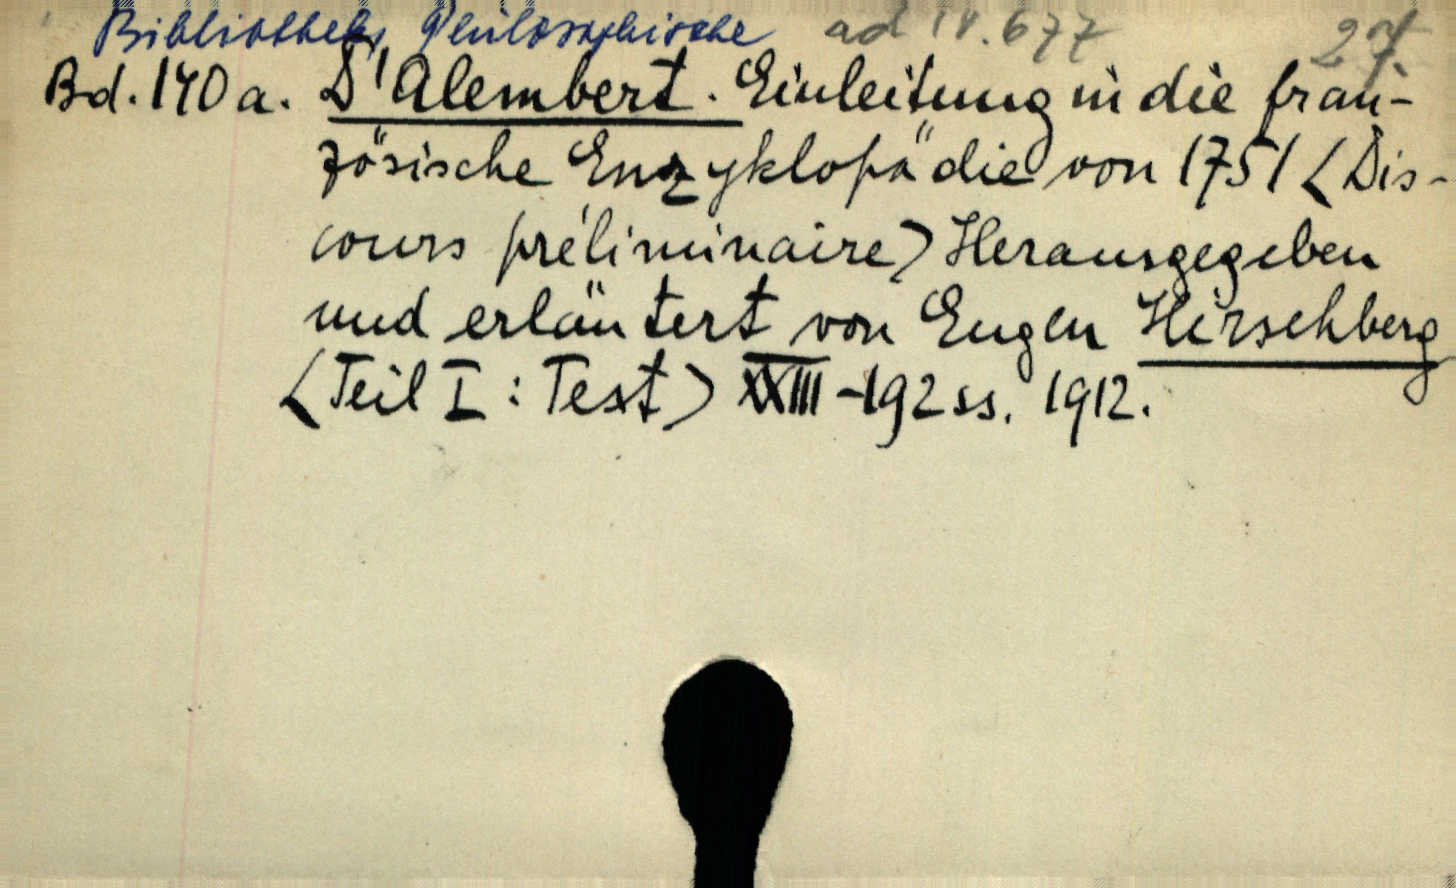 Bibliothek, Philosophische ad 18.677 27.
Bd. 140 a. D'Alembert. Einleitung in die fran-
zösische Enzyklopädie von 1751 <Dis-
cours préliminaire> Herausgegeben
und erläutert von Eugen Hirschberg
<Teil I : Text> XXIII - 192 ss. 1912.